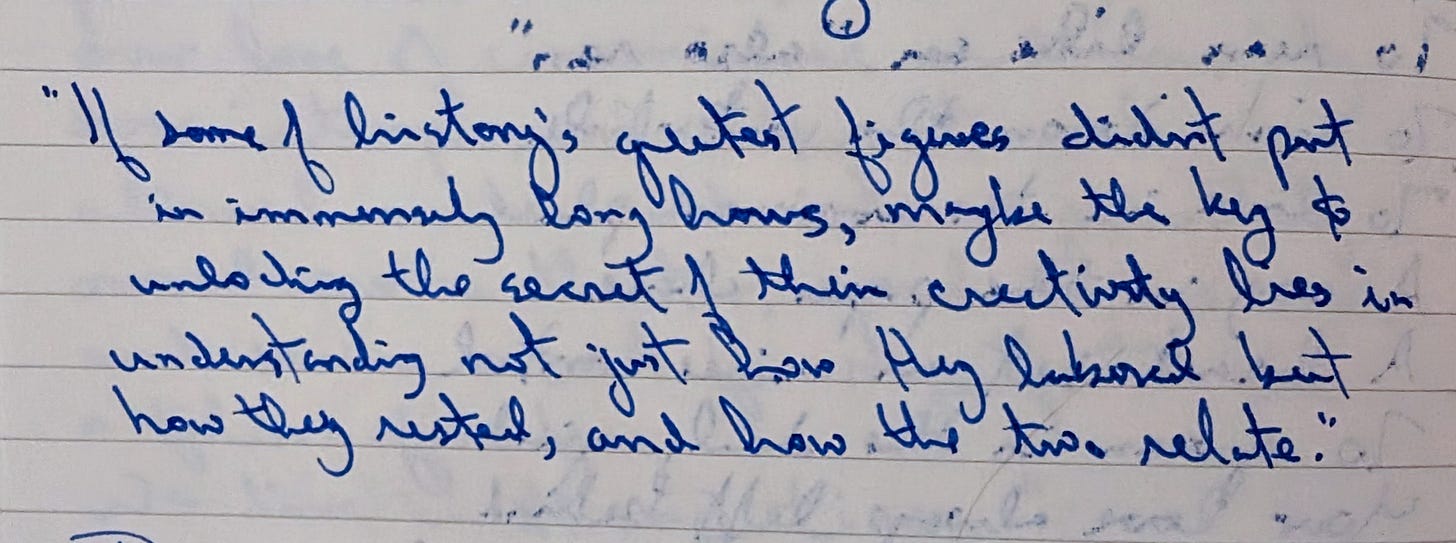 "If some of history's greatest figures didn't put
in immensely long hours, maybe the key to
unlocking the secret of their creativity lies in
understanding not just how they labored but
how they rested, and how the two relate."